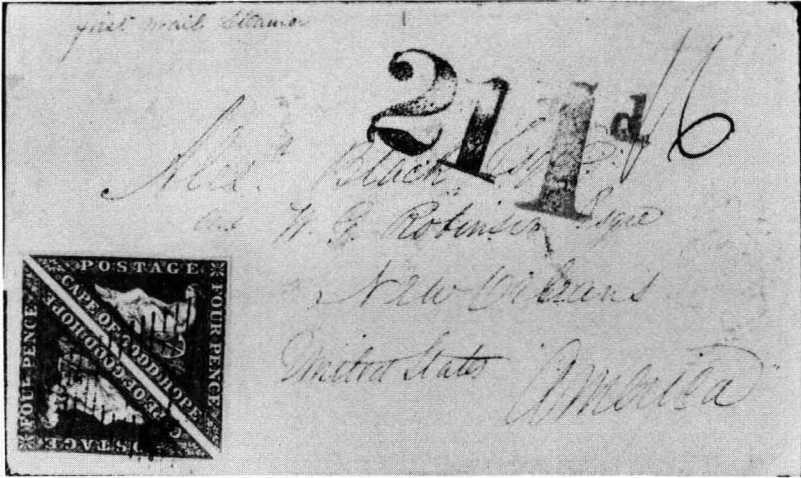 first mail Steamer
21 1d 1/6
Alexr. Black, Esqre.
W. G. Robinson Esqre
New Orleans
United States America
POSTAGE
FOUR PENCE
CAPE OF GOOD HOPE
CAPE OF GOOD HOPE
FOUR PENCE
POSTAGE